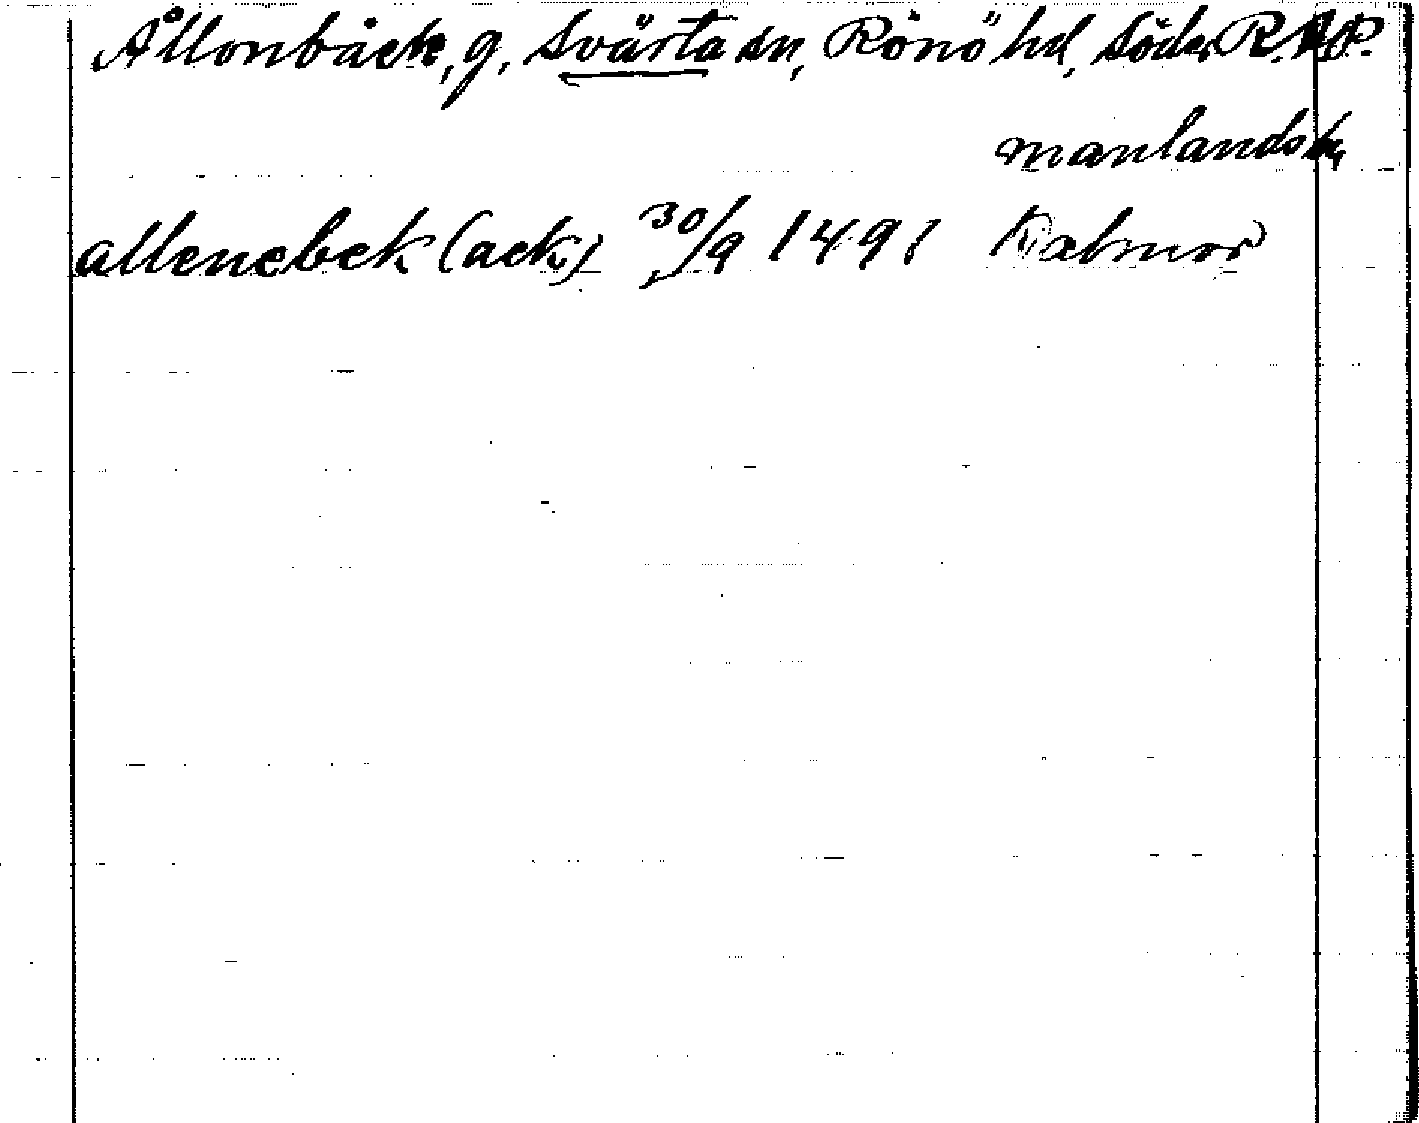 Ållonbäck, g, Svärta sn, Rönö hd, Söder R.A.P.
manlands
allenebek (ack) 30/9 1491